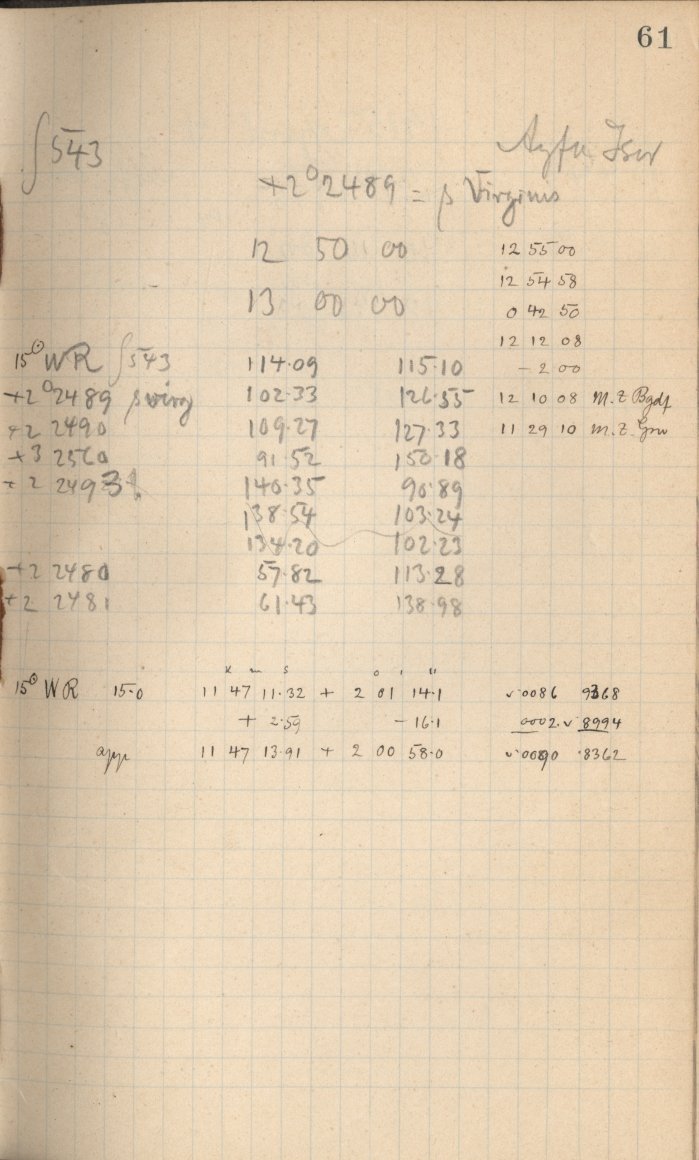 61
∫ 543
+2° 2489 = β Virginis
12 50 00 12 55 00
12 54 58
13 00 00 0 42 50
12 12 08
15° WR ∫543 114.09 115.10 - 2 00
+2° 2489 β virg 102.33 126.55 12 10 08 M.Z Bgdf
+2 2490 109.27 127.33 11 29 10 M.Z. Grw
+3 2560 91.52 150.18
+2 2493 140.35 90.89
138.54 103.24
134.20 102.23
+2 2480 57.82 113.28
+2 2481 61.43 138.98
h m s ° ' "
15° WR 15.0 11 47 11.32 + 2 01 14.1 .0086 9368
+ 2.59 - 16.1 0002 8994
app 11 47 13.91 + 2 00 58.0 .0090 .8362